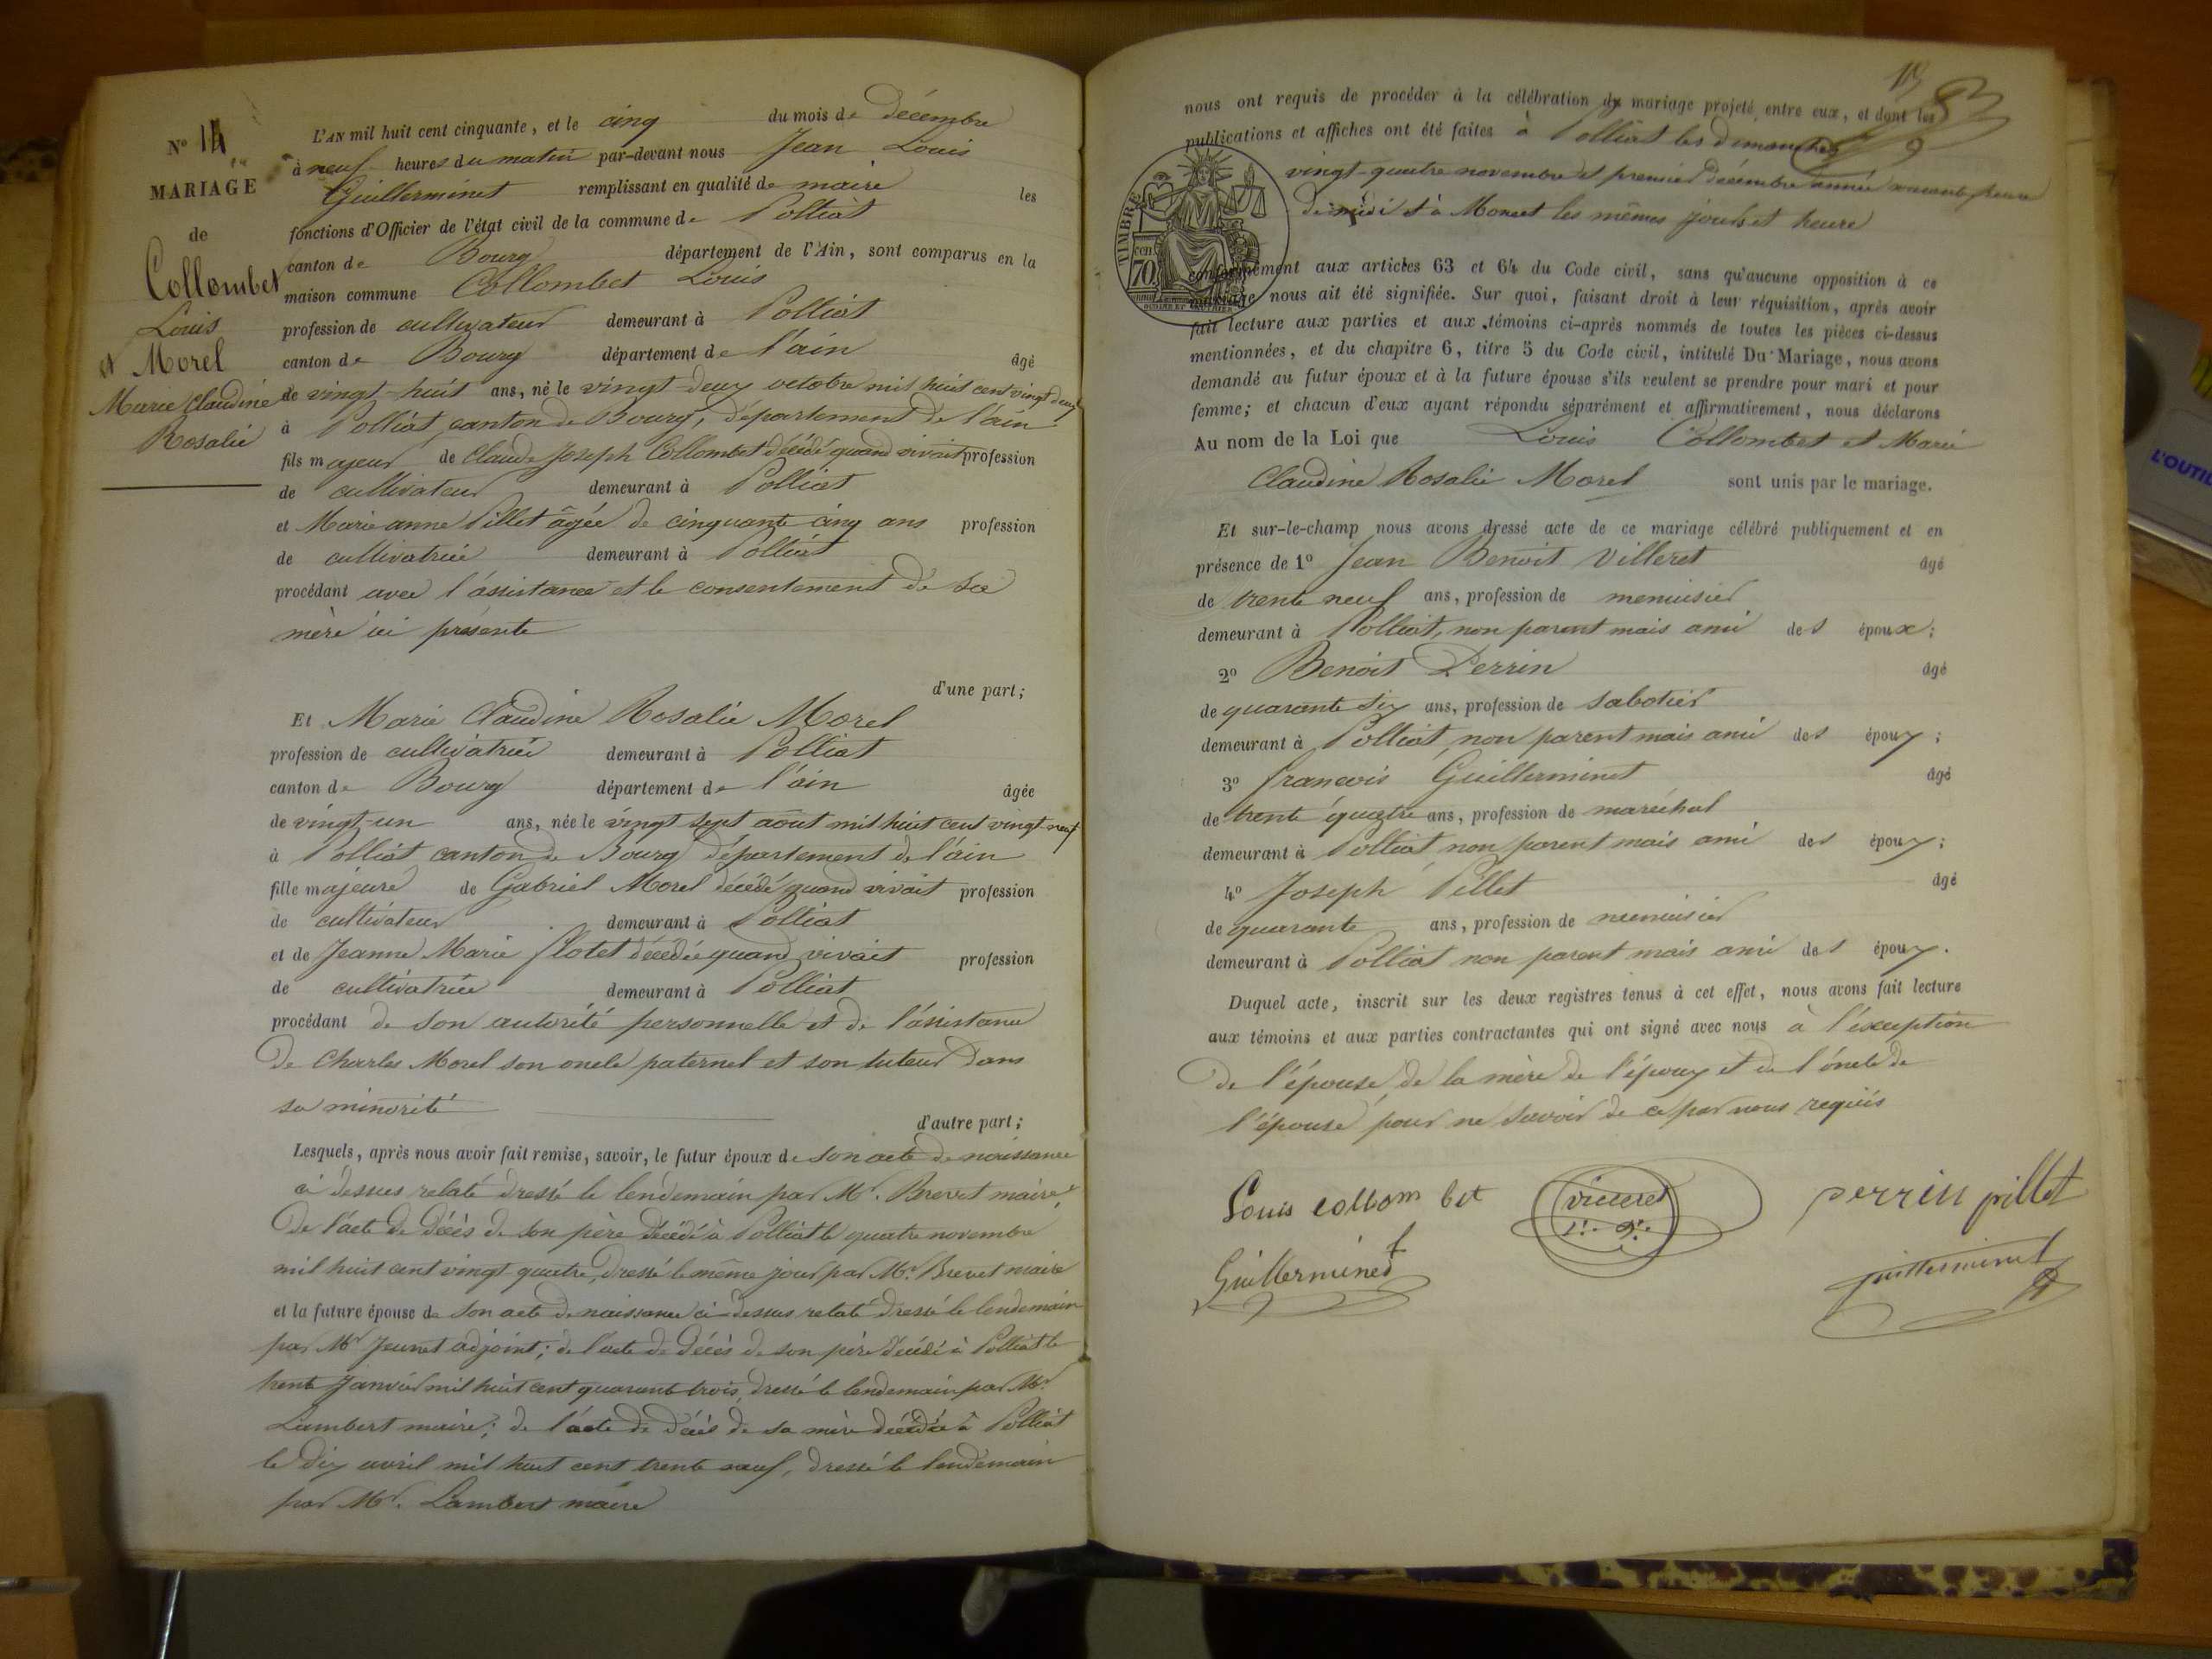 N° 14
MARIAGE
de
Collombet
Louis
et Morel
Marie Claudine
Rosalie
L'AN mil huit cent cinquante, et le cinq du mois de décembre
à neuf heures du matin par-devant nous Jean Louis
Guillerminet remplissant en qualité de maire les
fonctions d'Officier de l'état civil de la commune de Polliat
canton de Bourg département de l'Ain, sont comparus en la
maison commune Collombet Louis
profession de cultivateur demeurant à Polliat
canton de Bourg département de l'ain âgé
de vingt-huit ans, né le vingt-deux octobre mil huit cent vingt deux
à Polliat canton de Bourg, département de l'ain
fils majeur de Claude Joseph Collombet décédé quand vivait profession
de cultivateur demeurant à Polliat
et Marie anne Pillet âgée de cinquante cinq ans profession
de cultivatrice demeurant à Polliat
procédant avec l'assistance et le consentement de sa
mère ici présente
d'une part;
Et Marie Claudine Rosalie Morel
profession de cultivatrice demeurant à Polliat
canton de Bourg département de l'ain âgée
de vingt-un ans, née le vingt sept aout mil huit cent vingt-neuf
à Polliat canton de Bourg département de l'ain
fille majeure de Gabriel Morel décédé quand vivait profession
de cultivateur demeurant à Polliat
et de Jeanne Marie flotet décédée quand vivait profession
de cultivatrice demeurant à Polliat
procédant de son autorité personnelle et de l'assistance
de Charles Morel son oncle paternel et son tuteur dans
sa minorité
d'autre part;
Lesquels, après nous avoir fait remise, savoir, le futur époux de son acte de naissance
ci dessus relaté dressé le lendemain par Mr. Brevet maire,
de l'acte de décès de son père décédé à Polliat le quatre novembre
mil huit cent vingt quatre, dressé le même jour par Mr. Brevet maire
et la future épouse de son acte de naissance ci-dessus relaté dressé le lendemain
par Mr Jeunet adjoint; de l'acte de décès de son père décédé à Polliat le
trente Janvier mil huit cent quarante trois, dressé le lendemain par Mr
Lambert maire; de l'acte de décès de sa mère décédée à Polliat
le dix avril mil huit cent trente neuf, dressé le lendemain
par Mr. Lambert maire
nous ont requis de procéder à la célébration du mariage projeté entre eux, et dont les
publications et affiches ont été faites à Polliat les dimanches
vingt-quatre novembre et premier décembre année courante heure
de midi et à Moncet les mêmes jours et heure
TIMBRE
70
conformément aux articles 63 et 64 du Code civil, sans qu'aucune opposition à ce
mariage nous ait été signifiée. Sur quoi, faisant droit à leur réquisition, après avoir
fait lecture aux parties et aux témoins ci-après nommés de toutes les pièces ci-dessus
mentionnées, et du chapitre 6, titre 5 du Code civil, intitulé Du Mariage, nous avons
demandé au futur époux et à la future épouse s'ils veulent se prendre pour mari et pour
femme; et chacun d'eux ayant répondu séparément et affirmativement, nous déclarons
Au nom de la Loi que Louis Collombet et Marie
Claudine Rosalie Morel sont unis par le mariage.
Et sur-le-champ nous avons dressé acte de ce mariage célébré publiquement et en
présence de 1° Jean Benoit Villeret âgé
de trente neuf ans, profession de menuisier
demeurant à Polliat, non parent mais ami des époux;
2° Benoit Perrin âgé
de quarante six ans, profession de sabotier
demeurant à Polliat non parent mais ami des époux;
3° francois Guillerminet âgé
de trente quatre ans, profession de maréchal
demeurant à Polliat non parent mais ami des époux;
4° Joseph Pillet âgé
de quarante ans, profession de menuisier
demeurant à Polliat non parent mais ami des époux.
Duquel acte, inscrit sur les deux registres tenus à cet effet, nous avons fait lecture
aux témoins et aux parties contractantes qui ont signé avec nous à l'exception
de l'épouse, de la mère de l'époux et de l'oncle de
l'épouse pour ne savoir de ce par nous requis
Louis collom bet
villeret
perrin pillet
Guillerminet
guillerminet
L'OUTIL